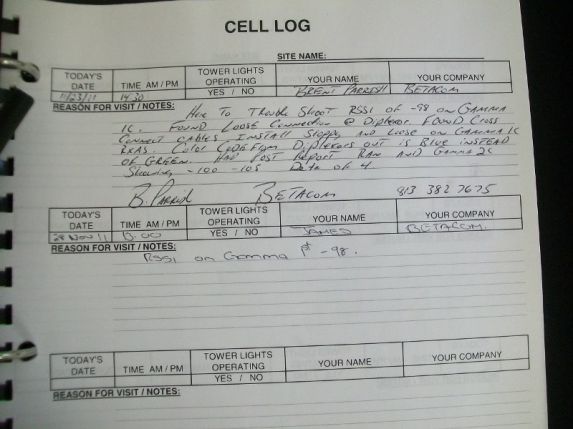 CELL LOG
SITE NAME:
TODAY'S DATE TIME AM / PM TOWER LIGHTS OPERATING YOUR NAME YOUR COMPANY
11/23/11 1430 YES / NO BRENT PARRISH BETACOM
REASON FOR VISIT / NOTES:
HERE TO TROUBLE SHOOT RSSI OF -98 ON GAMMA
1C. FOUND LOOSE CONNECTION @ DIPLEXOR. FOUND CROSS
CONNECT CABLES INSTALL SLOPPY AND LOOSE ON GAMMA 1C
COLOR CODE FROM DIPLEXORS OUT IS BLUE INSTEAD
OF GREEN. HAD POST REPORT RAN AND GAMMA 2C
SHOWING -100 -105 DELTA OF 4
B. Parrish BETACOM 813 382 7675
TODAY'S DATE TIME AM / PM TOWER LIGHTS OPERATING YOUR NAME YOUR COMPANY
28 NOV 11 13:00 YES / NO JAMES BETACOM.
REASON FOR VISIT / NOTES:
RSSI on Gamma -98.
TODAY'S DATE TIME AM / PM TOWER LIGHTS OPERATING YOUR NAME YOUR COMPANY
YES / NO
REASON FOR VISIT / NOTES: